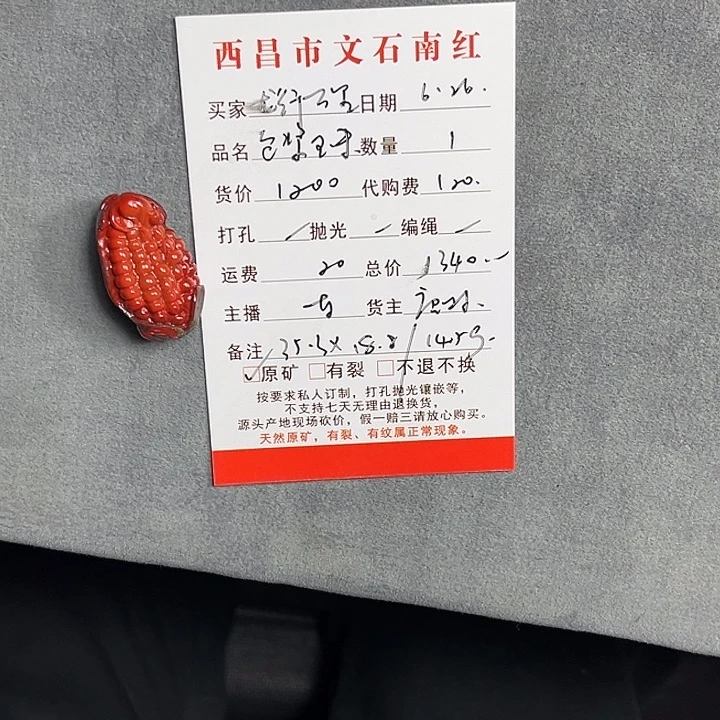 西昌市文石南红
买家 日期 6.26.
品名 数量 1
货价 1200 代购费 120.
打孔 / 抛光 / 编绳 /
运费 20 总价 1340.--
主播 货主
备注 35.3X 18.8/14.5g.
☑原矿 □有裂 □不退不换
按要求私人订制，打孔抛光镶嵌等，
不支持七天无理由退换货，
源头产地现场砍价，假一赔三请放心购买。
天然原矿，有裂、有纹属正常现象。